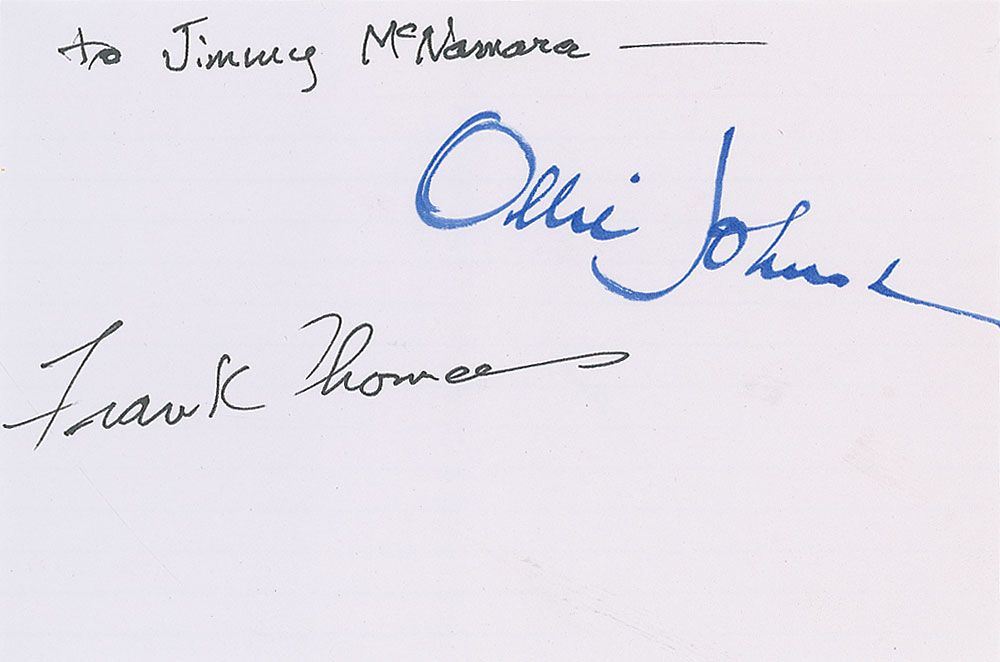 to Jimmy McNamara —
Ollie Johnston
Frank Thomas